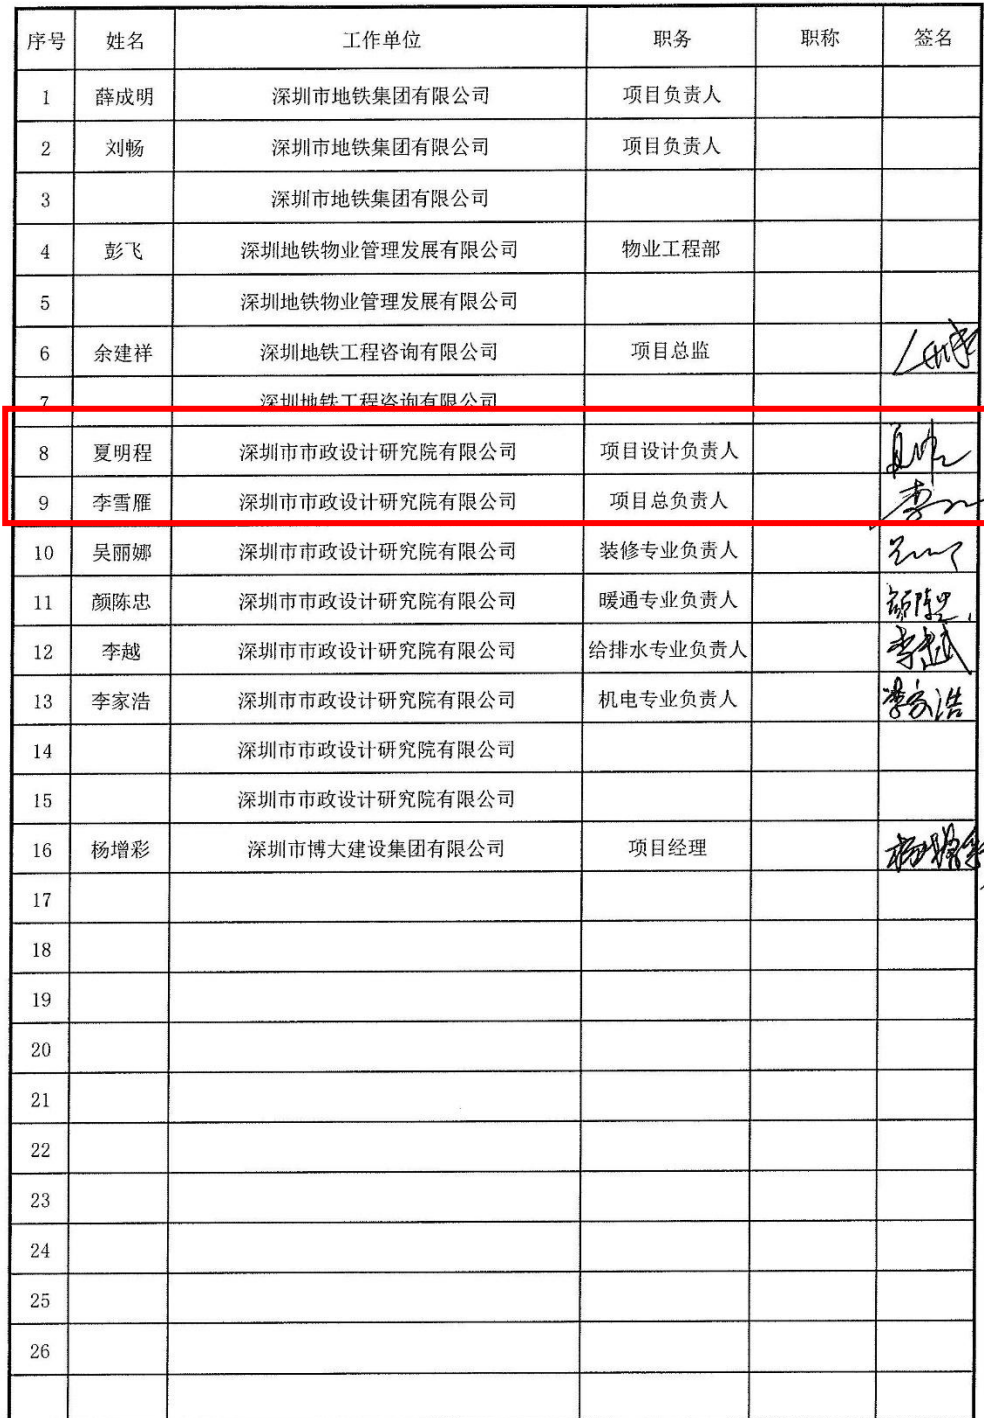 序号 姓名 工作单位 职务 职称 签名
1 薛成明 深圳市地铁集团有限公司 项目负责人
2 刘畅 深圳市地铁集团有限公司 项目负责人
3 深圳市地铁集团有限公司
4 彭飞 深圳地铁物业管理发展有限公司 物业工程部
5 深圳地铁物业管理发展有限公司
6 余建祥 深圳地铁工程咨询有限公司 项目总监
7 深圳地铁工程咨询有限公司
8 夏明程 深圳市市政设计研究院有限公司 项目设计负责人
9 李雪雁 深圳市市政设计研究院有限公司 项目总负责人 李
10 吴丽娜 深圳市市政设计研究院有限公司 装修专业负责人
11 颜陈忠 深圳市市政设计研究院有限公司 暖通专业负责人 颜陈忠
12 李越 深圳市市政设计研究院有限公司 给排水专业负责人 李越
13 李家浩 深圳市市政设计研究院有限公司 机电专业负责人 李家浩
14 深圳市市政设计研究院有限公司
15 深圳市市政设计研究院有限公司
16 杨增彩 深圳市博大建设集团有限公司 项目经理 杨增彩
17
18
19
20
21
22
23
24
25
26